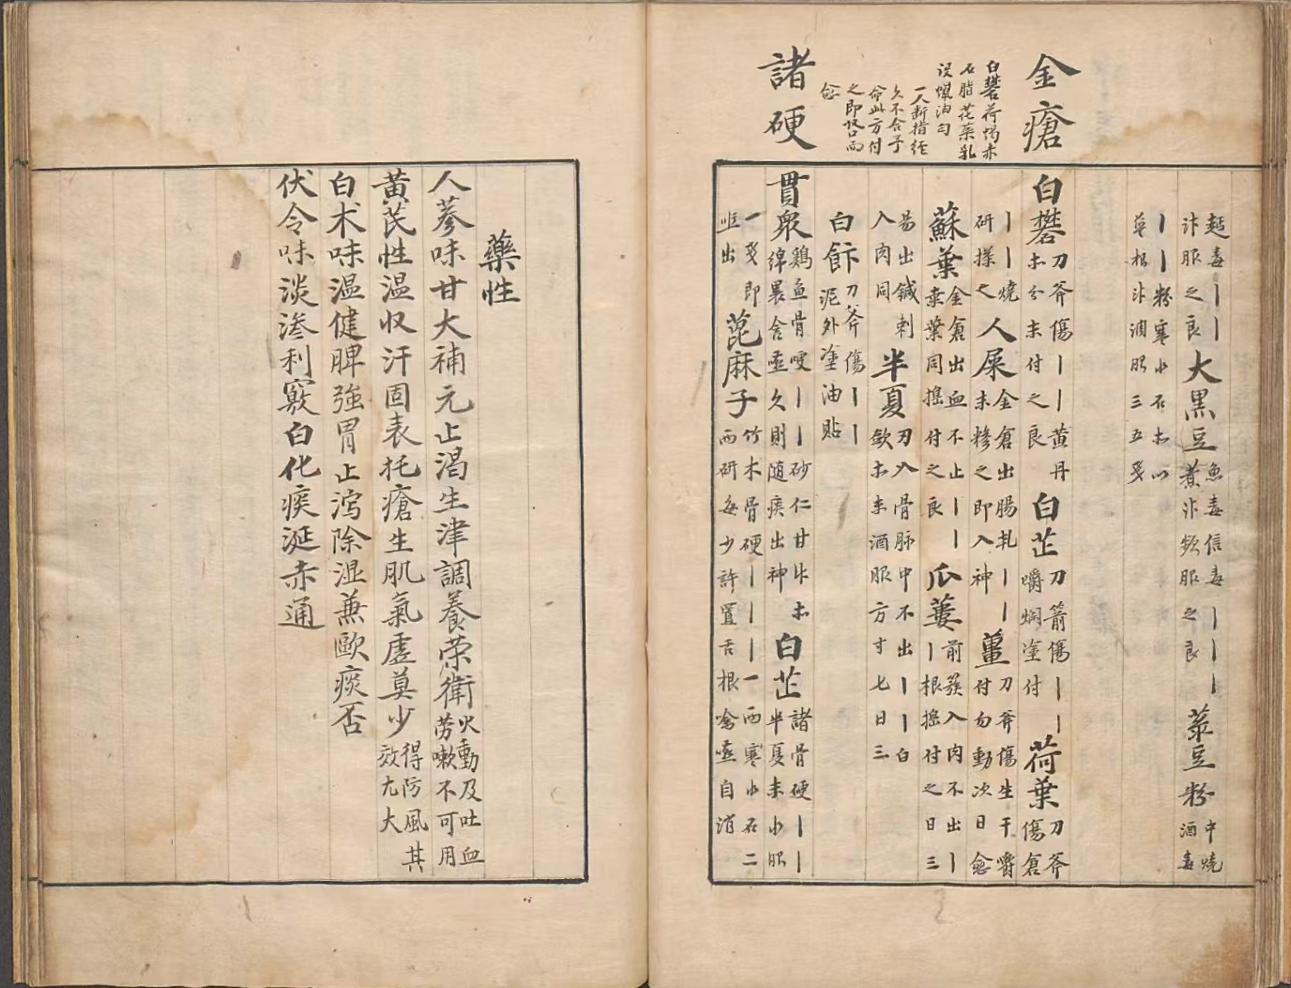 麺毒丨丨
汁服之良大黒豆魚毒信毒丨丨丨
煮汁飲服之良菉豆粉中燒
酒毒
丨丨粉寒水石
草根汁調服三五
金瘡
白礬荷葉赤
石脂花蘂乳
油匀
一人斷指經
久不合予
命此方付
之即
愈
白礬刀斧傷丨丨黄丹
末付之良白芷刀箭傷丨丨
嚼爛塗付荷葉刀斧
傷倉
丨丨燒
研摻之人屎金倉出腸丨丨
末糝之即入神薑刀斧傷生干嚼
付勿動次日愈
蘇葉金倉出血不止丨丨
葉同搗付之良瓜蔞箭簇入肉不出丨
丨根搗付之日三
易出鍼刺
入肉同半夏刀入骨脉中不出丨丨白
歛末酒服方寸七日三
白刀斧傷丨丨
泥外塗油貼
諸硬
貫衆鷄魚骨哽丨丨砂仁甘草
綿裹含嚥久則随痰出神白芷諸骨硬丨丨
半夏末水服
一即
出蓖麻子竹木骨硬丨丨丨一两寒水石二
两研每少許置舌根噙嚥自消
藥性
人蔘味甘大補元止渴生津調養荣衛火動及吐血
劳嗽不可用
黄芪性温収汗固表托瘡生肌氣虚莫少得防風其
效尤大
白术味温健脾強胃止瀉除湿兼歐痰否
伏令味淡滲利竅白化痰涎赤通